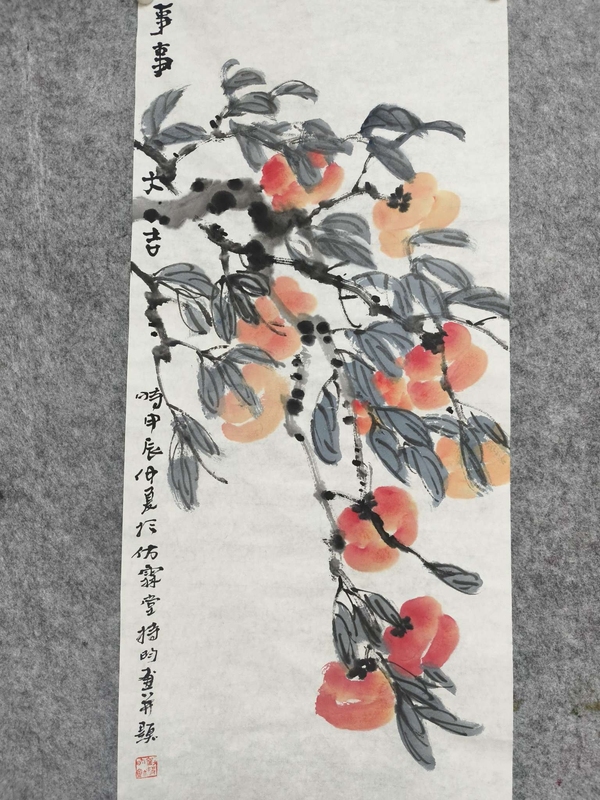 事事大吉
時甲辰仲夏於仿霖堂持昀畫并題